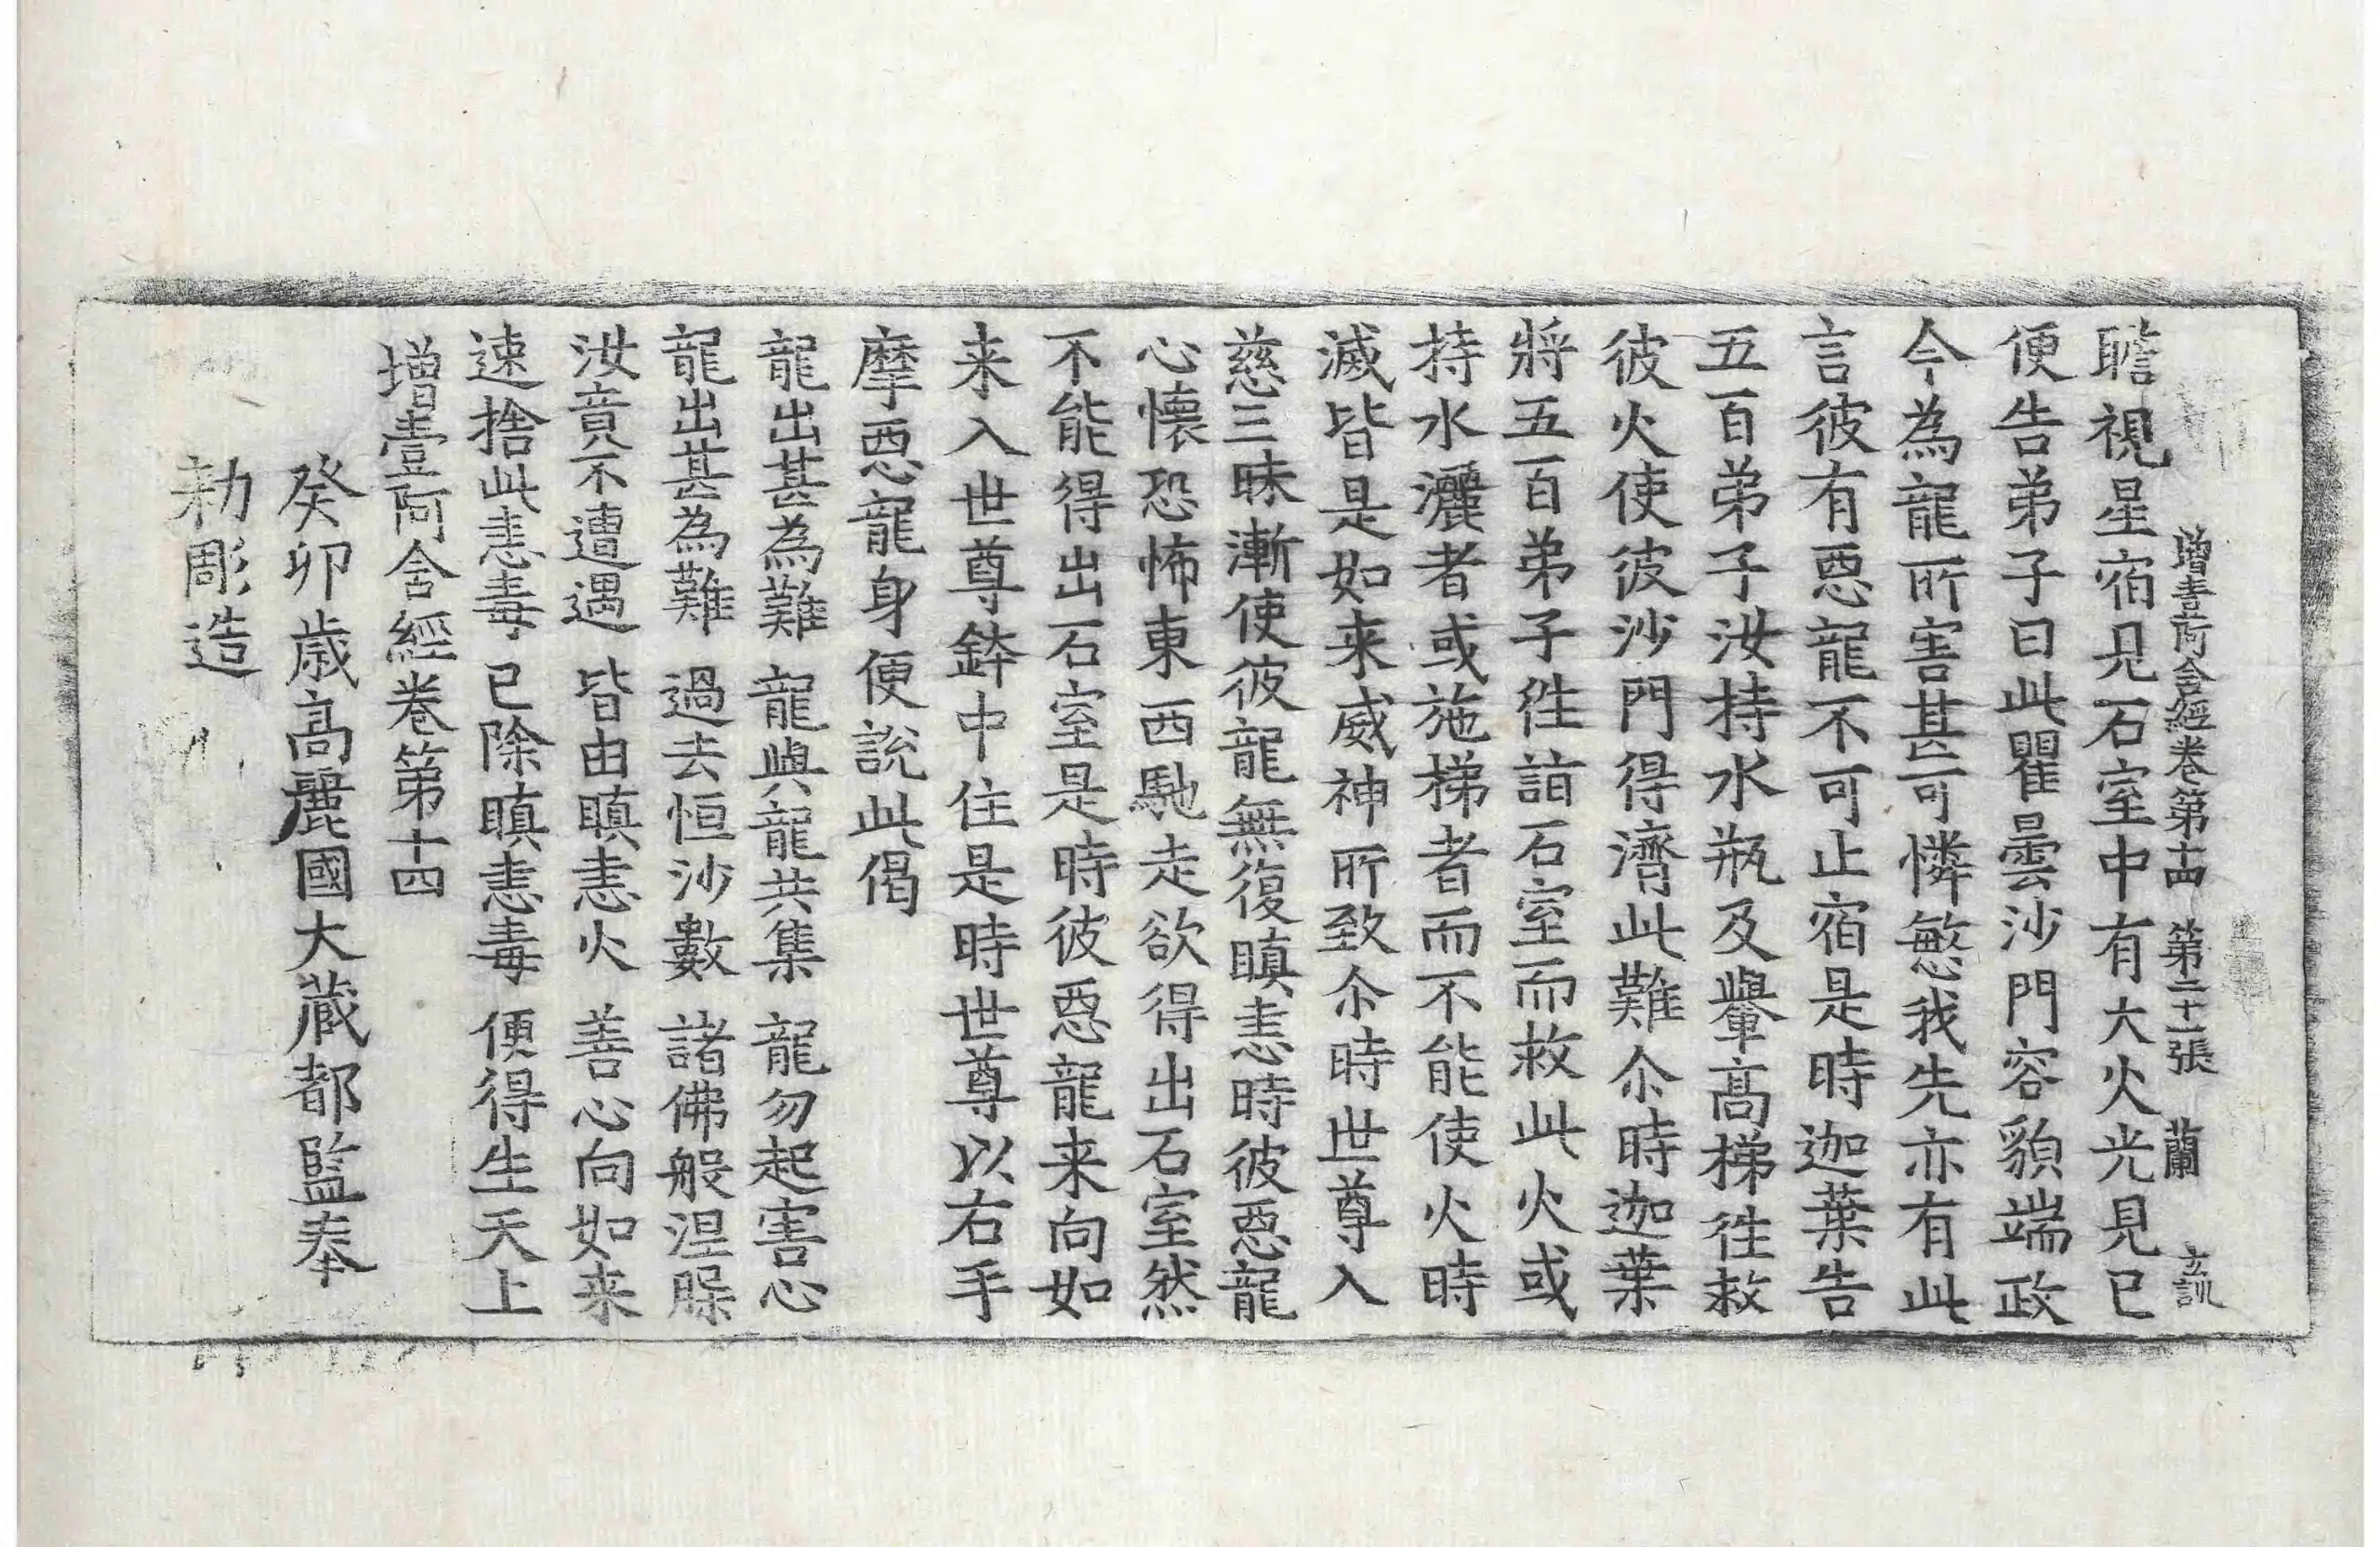 增壹阿含經卷第十四 第二十一張 蘭 玄訓
瞻視星宿見石室中有大火光見已
便告弟子曰此瞿曇沙門容貌端政
今為龍所害甚可憐愍我先亦有此
言彼有惡龍不可止宿是時迦葉告
五百弟子汝持水瓶及轝高梯往救
彼火使彼沙門得濟此難尒時迦葉
將五百弟子徃詣石室而救此火或
持水灑者或施梯者而不能使火時
滅皆是如来威神所致尒時世尊入
慈三昧漸使彼龍無復瞋恚時彼惡龍
心懷恐怖東西馳走欲得出石室然
不能得出石室是時彼惡龍来向如
来入世尊鉢中住是時世尊以右手
摩惡龍身便說此偈
龍出甚為難 龍與龍共集 龍勿起害心
龍出甚為難 過去恒沙數 諸佛般涅槃
汝竟不遭遇 皆由瞋恚火 善心向如来
速捨此恚毒 已除瞋恚毒 便得生天上
增壹阿含經卷第十四
癸卯歲高麗國大藏都監奉
勅彫造